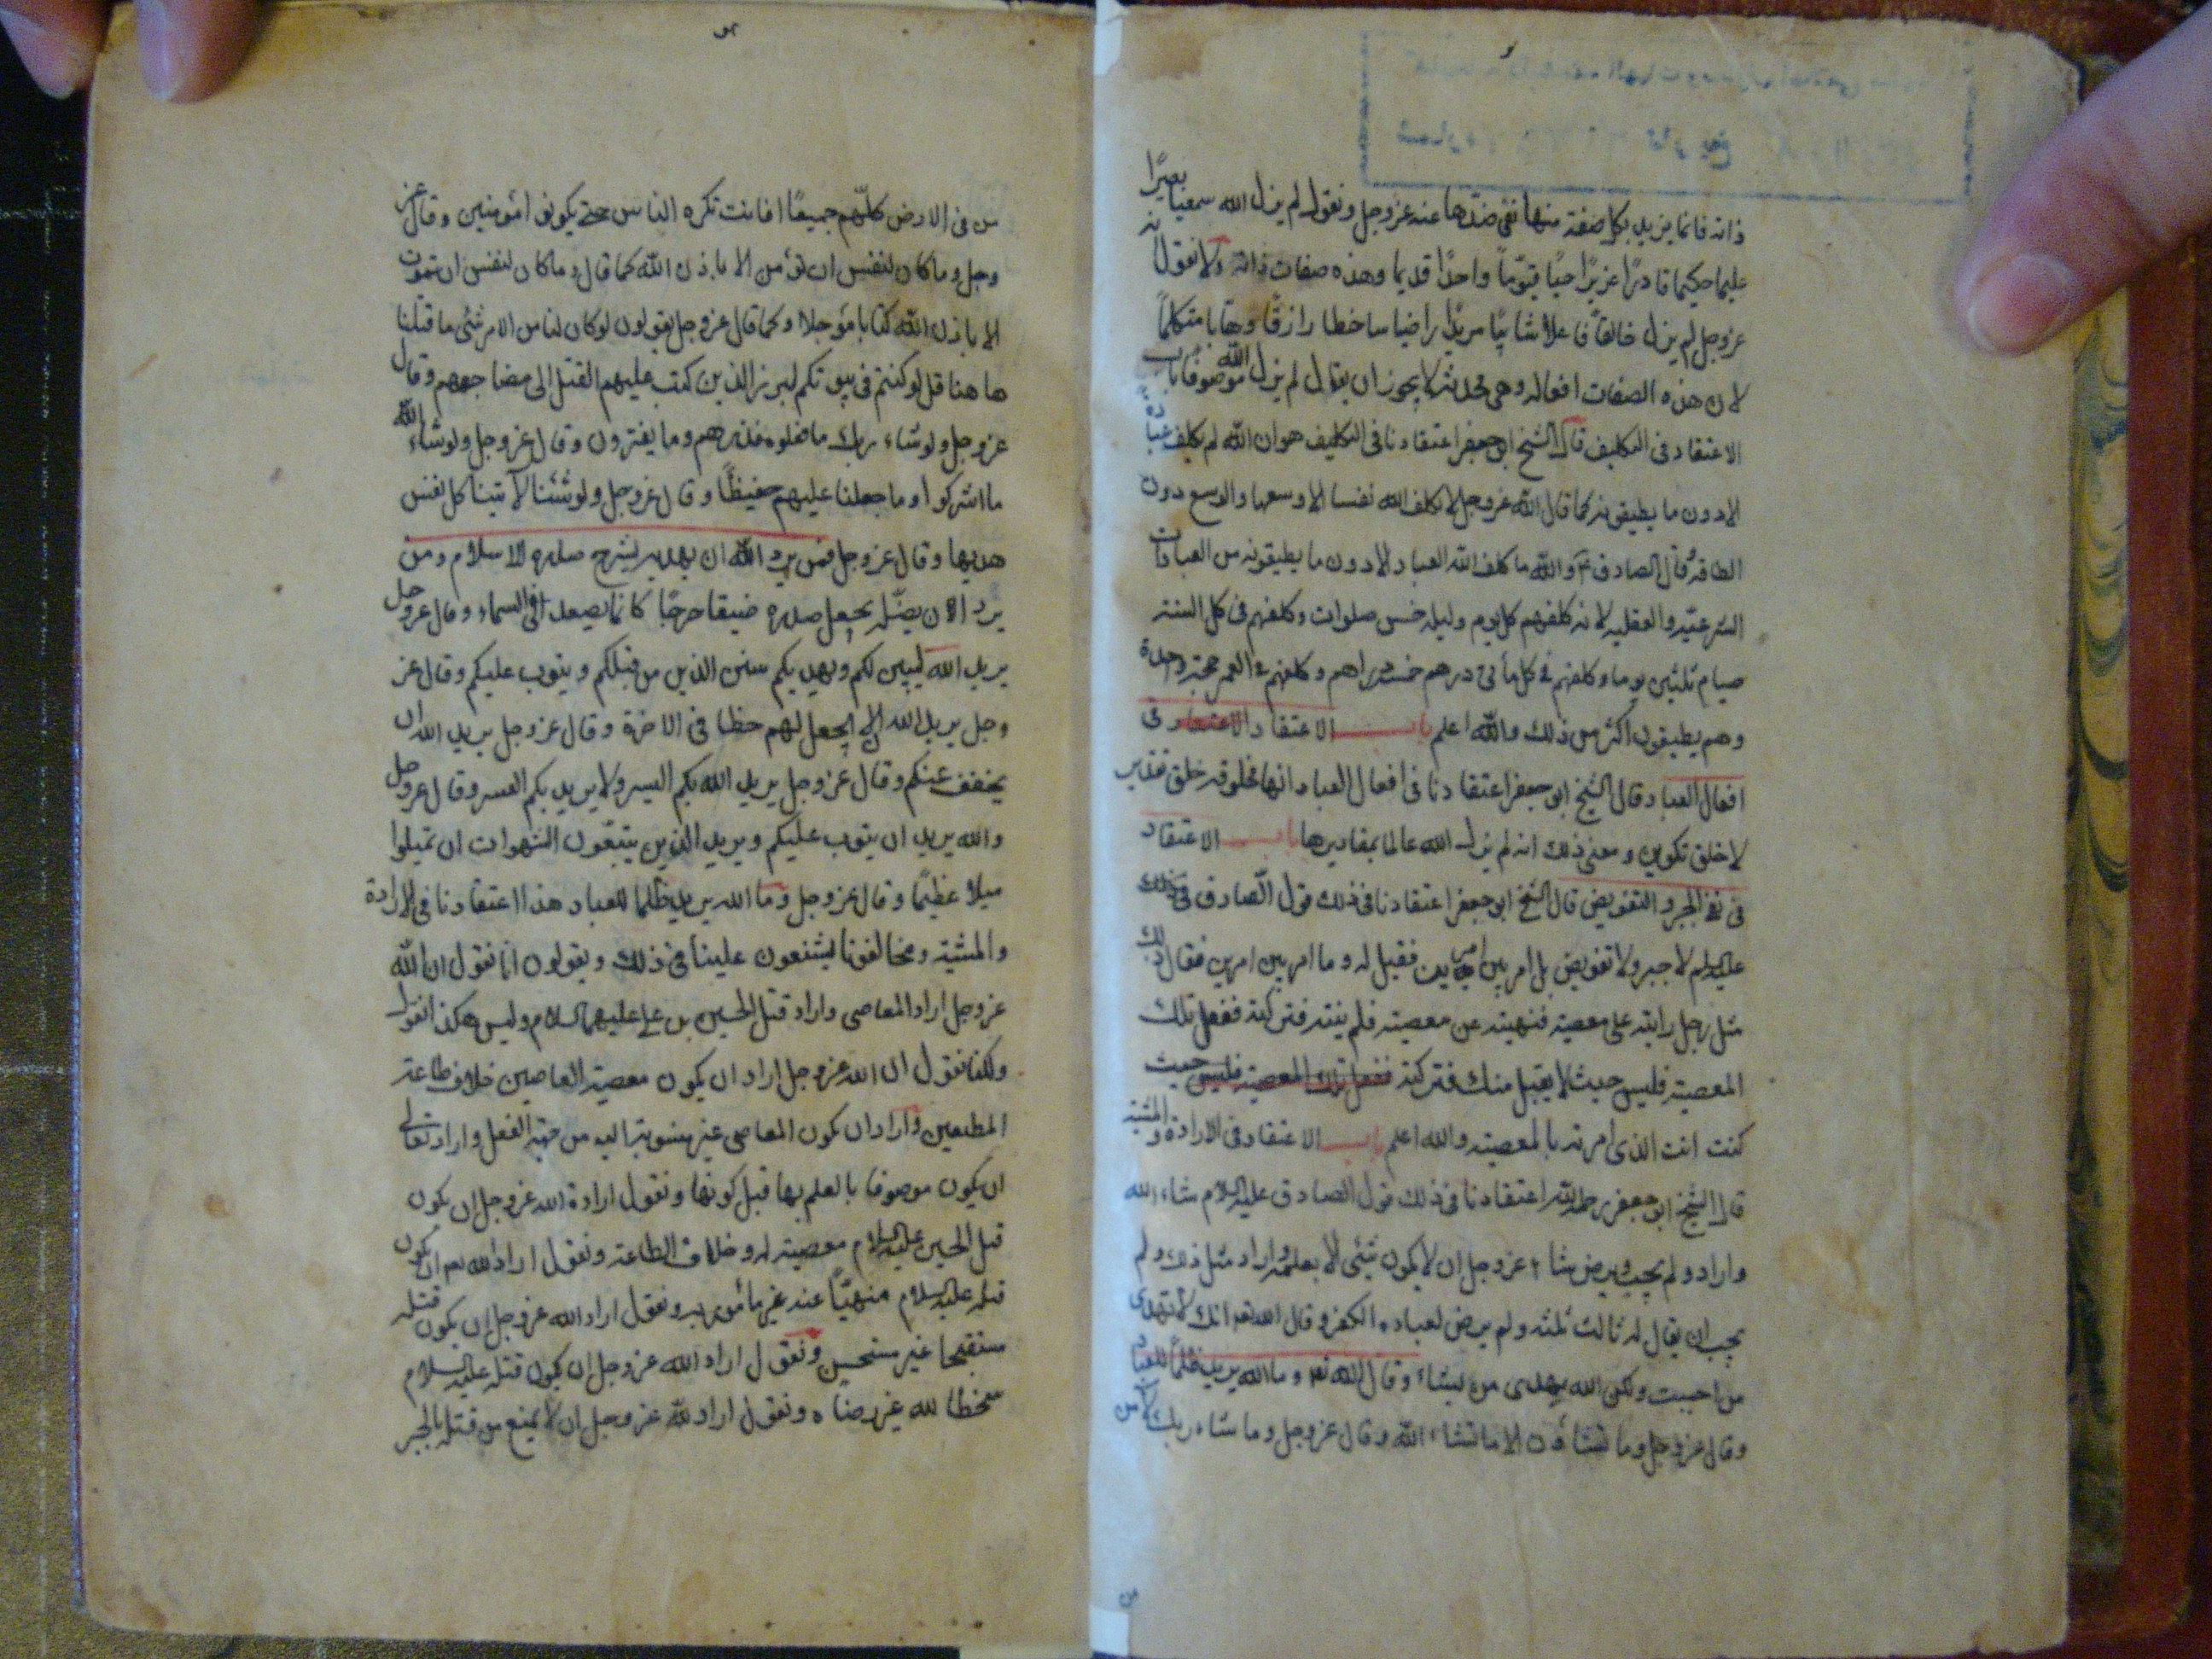 ذاته فانما يزيد بكل صفة منها نفى ضدها عنه عز وجل ونقول لم يزل الله سميعا بصيرًا
عليما حكيما قادرًا عزيزًا حيًا قيوّماً واحدًا قديما وهذه صفات ذاته ولا نقول انه
عز وجل لم يزل خالقاً فاعلا شائيًا مريدًا راضيا ساخطا رازقًا وهّابا متكلماً
لان هذه الصفات افعاله وهى محدثة لا يجوز ان يقال لم يزل الله موصوفا بها باب
الاعتقاد فى التكليف قال الشيخ ابو جعفر اعتقادنا فى التكليف هو ان الله لم يكلف عباده
الا دون ما يطيقونه كما قال الله عز وجل لا يكلف الله نفسا الا وسعها والوسع دون
الطاقة وقال الصادق ع والله ما كلف الله العباد الا دون ما يطيقونه من العبادات
الشرعيّه والعقليه لانه كلفهم كل يوم وليله خمس صلوات وكلفهم فى كل السنة
صيام ثلثين يوما وكلفهم فى كل مأتى درهم خمسة دراهم وكلفهم فى العمر حجة واحدة
وهم يطيقون اكثر من ذلك والله اعلم باب الاعتقاد الاعتقاد فى
افعال العباد قال الشيخ ابو جعفر اعتقادنا فى افعال العباد انها مخلوقه خلق تقدير
لا خلق تكوين ومعنى ذلك انه لم يزل الله عالما بمقاديرها باب الاعتقاد
فى نفى الجبر والتفويض قال الشيخ ابو جعفر اعتقادنا فى ذلك قول الصادق فى ذلك
عليه السلم لا جبر ولا تفويض بل امر بين امرين فقيل له وما امر بين امرين فقال ذلك
مثل رجل رايته على معصية فنهيته عن معصيته فلم ينته فتركته ففعل تلك
المعصية فليس حيث لا يقبل منك فتركته ففعل تلك المعصية فليس حيث
كنت انت الذى امرته بالمعصية والله اعلم باب الاعتقاد فى الارادة والمشية
قال الشيخ ابو جعفر رحمه الله اعتقادنا فى ذلك قول الصادق عليه السلام شاء الله
واراد ولم يحب ولم يرض شاء عز وجل ان لا يكون شئى الا بعلمه واراد مثل ذلك ولم
يحب ان يقال له ثالث ثلثه ولم يرض لعباده الكفر وقال الله تعه انك لا تهدى
من احببت ولكن الله يهدى من يشاء وقال الله تعه وما الله يريد ظلماً للعباد
وقال عز وجل وما تشاؤن الا ما تشاء الله وقال عز وجل وما شاء ربك لامن
من فى الارض كلّهم جميعًا افانت تكره الناس حتى يكونوا مؤمنين وقال عز
وجل وما كان لنفس ان تؤمن الا باذن الله كما قال وما كان لنفس ان تموت
الا باذن الله كتابا مؤجلا وكما قال عز وجل يقولون لو كان لنا من الامر شئى ما قتلنا
هاهنا قل لو كنتم فى بيوتكم لبرز الذين كتب عليهم القتل الى مضاجعهم وقال
عز وجل ولو شاء ربك ما فعلوه فذرهم وما يفترون وقال عز وجل ولو شاء الله
ما اشركوا وما جعلنا عليهم حفيظًا وقال عز وجل ولو شئنا لآتينا كل نفس
هديها وقال عز وجل فمن يرد الله ان يهديه يشرح صدره للاسلام ومن
يرد ان يضلّه يجعل صدره ضيقا حرجًا كانما يصعد فى السماء وقال عز وجل
يريد الله ليبين لكم ويهديكم سنن الذين من قبلكم ويتوب عليكم وقال عز
وجل يريد الله الا يجعل لهم حظا فى الاخرة وقال عز وجل يريد الله ان
يخفف عنكم وقال عز وجل يريد الله بكم اليسر ولا يريد بكم العسر وقال عز وجل
والله يريد ان يتوب عليكم ويريد الذين يتبعّون الشهوات ان تميلوا
ميلا عظيمًا وقال عز وجل وما الله يريد ظلما للعباد هذا اعتقادنا فى الارادة
والمشية ومخالفونا يشنعون علينا فى ذلك ويقولون انا نقول ان الله
عز وجل اراد المعاصى واراد قتل الحسين بن على عليهما السلام وليس هكذا نقول
ولكنا نقول ان الله عز وجل اراد ان يكون معصية العاصين خلاف طاعة
المطيعين واراد ان يكون المعاصى غير منسوبة اليه من جهة الفعل واراد تعالى
ان يكون موصوفا بالعلم بها قبل كونها ونقول ارادة الله عز وجل ان يكون
قتل الحسين عليه السلام معصية له وخلاف الطاعة ونقول اراد الله تعه ان يكون
قتله عليه السلام منهيًّا عنه غير مأمور به ونقول اراد الله عز وجل ان يكون قتله
مستقبحا غير مستحسن ونقول اراد الله عز وجل ان يكون قتله عليه السلام
سخطا لله غير رضاه ونقول اراد الله عز وجل ان لا يمنع من قتله بالجبر